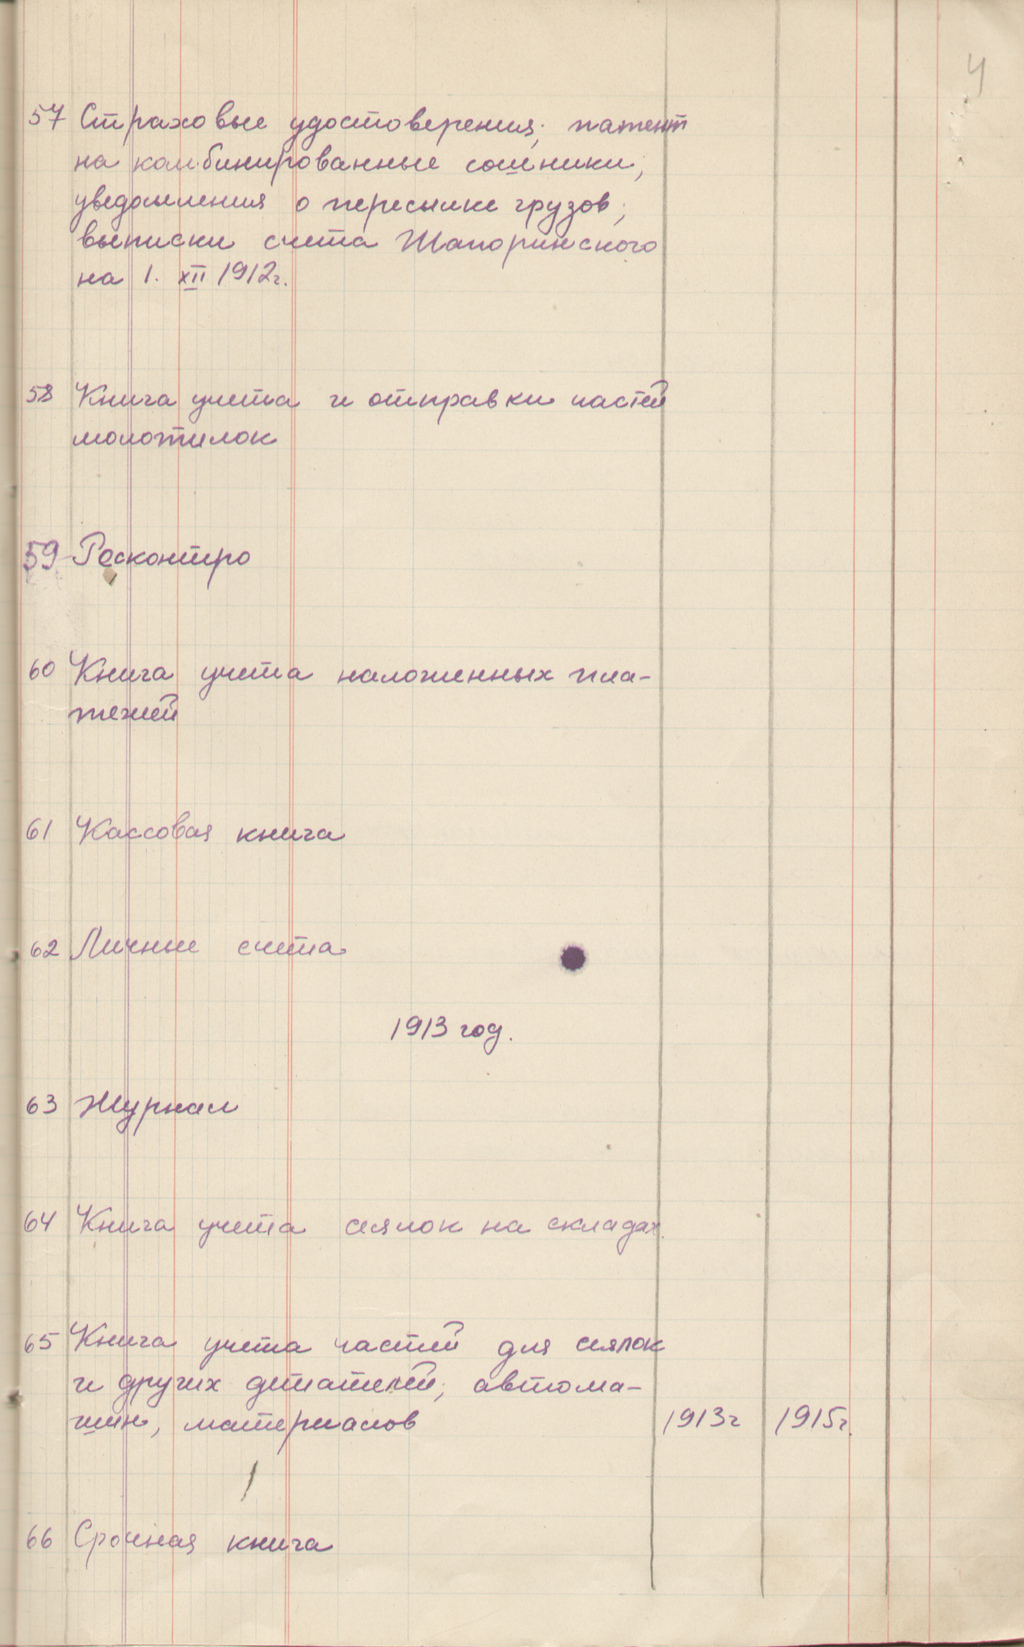 4
57 Страховые удостоверения; патент
на комбинированные сошники,
уведомления о пересылке грузов,
выписки счета Шапоринского
на 1. XII 1912г.
58 Книга учета и отправки частей
молотилок
59 Ресконтро
60 Книга учета наложенных пла-
тежей
61 Кассовая книга
62 Личные счета
1913 год.
63 Журнал
64 Книга учета сеялок на складах
65 Книга учета частей для сеялок
и других деталей, автома-
шин, материалов 1913г 1915г.
66 Срочная книга